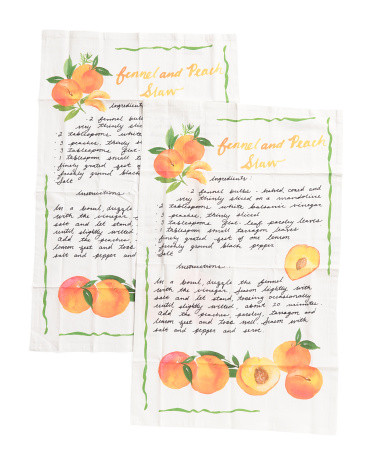 fennel and Peach
Slaw
Ingredients
- 2 fennel bulbs
very thinly slic
- 2 tablespoons white
- 3 peaches, thinly sl
- 3 tablespoons
- 1 tablespoon small t
finely grated zest of
freshly ground black
salt
Instructions
In a bowl, drizzle the
with the vinegar
salt and let stand,
until slightly wilted
add the peaches
lemon zest and toss
salt and pepper and
fennel and Peach
Slaw
Ingredients
- 2 fennel bulbs - halved, cored and
very thinly sliced on a mandoline
- 2 tablespoons white balsamic vinegar
- 3 peaches, thinly sliced
- 3 tablespoons flat-leaf parsley leaves
- 1 tablespoon small tarragon leaves
finely grated zest of one lemon
freshly ground black pepper
salt
Instructions
In a bowl, drizzle the fennel
with the vinegar, season lightly with
salt and let stand, tossing occasionally
until slightly wilted about 20 minutes
Add the peaches parsley, tarragon and
lemon zest and toss well season with
salt and pepper and serve